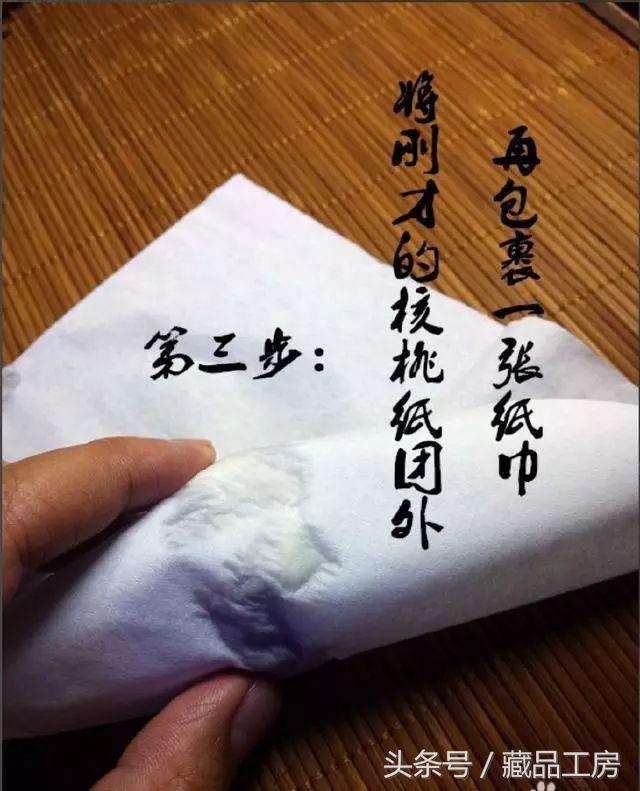 第三步：
将刚才的核桃纸团外
再包裹一张纸巾
头条号／藏品工房